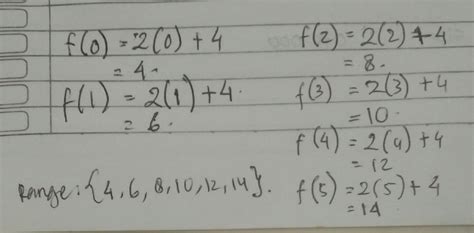 f(0) = 2(0) + 4
= 4.
f(1) = 2(1) + 4.
= 6.
Range: {4, 6, 8, 10, 12, 14}.
f(2) = 2(2) + 4
= 8.
f(3) = 2(3) + 4
= 10.
f(4) = 2(4) + 4
= 12
f(5) = 2(5) + 4
= 14.